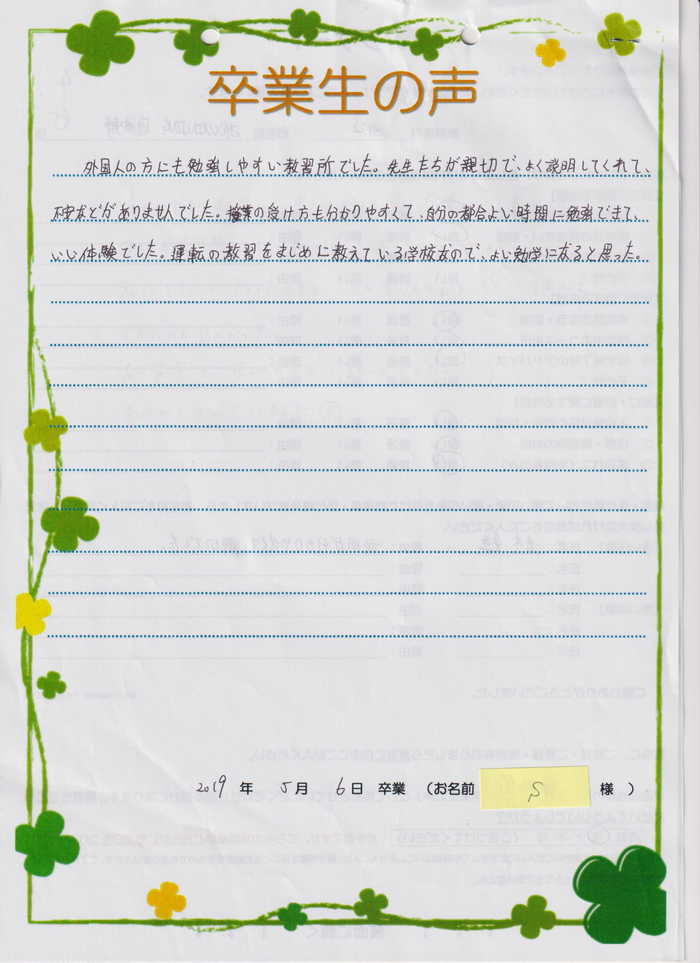 卒業生の声
外国人の方にも勉強しやすい教習所でした。先生たちが親切で、よく説明してくれて、
不安などがありませんでした。授業の受け方も分かりやすくて、自分の都合よい時間に勉強できて、
いい体験でした。運転の教習をまじめに教えている学校なので、よい勉学になると思った。
2019 年 5月 6日 卒業 （お名前 S 様 ）